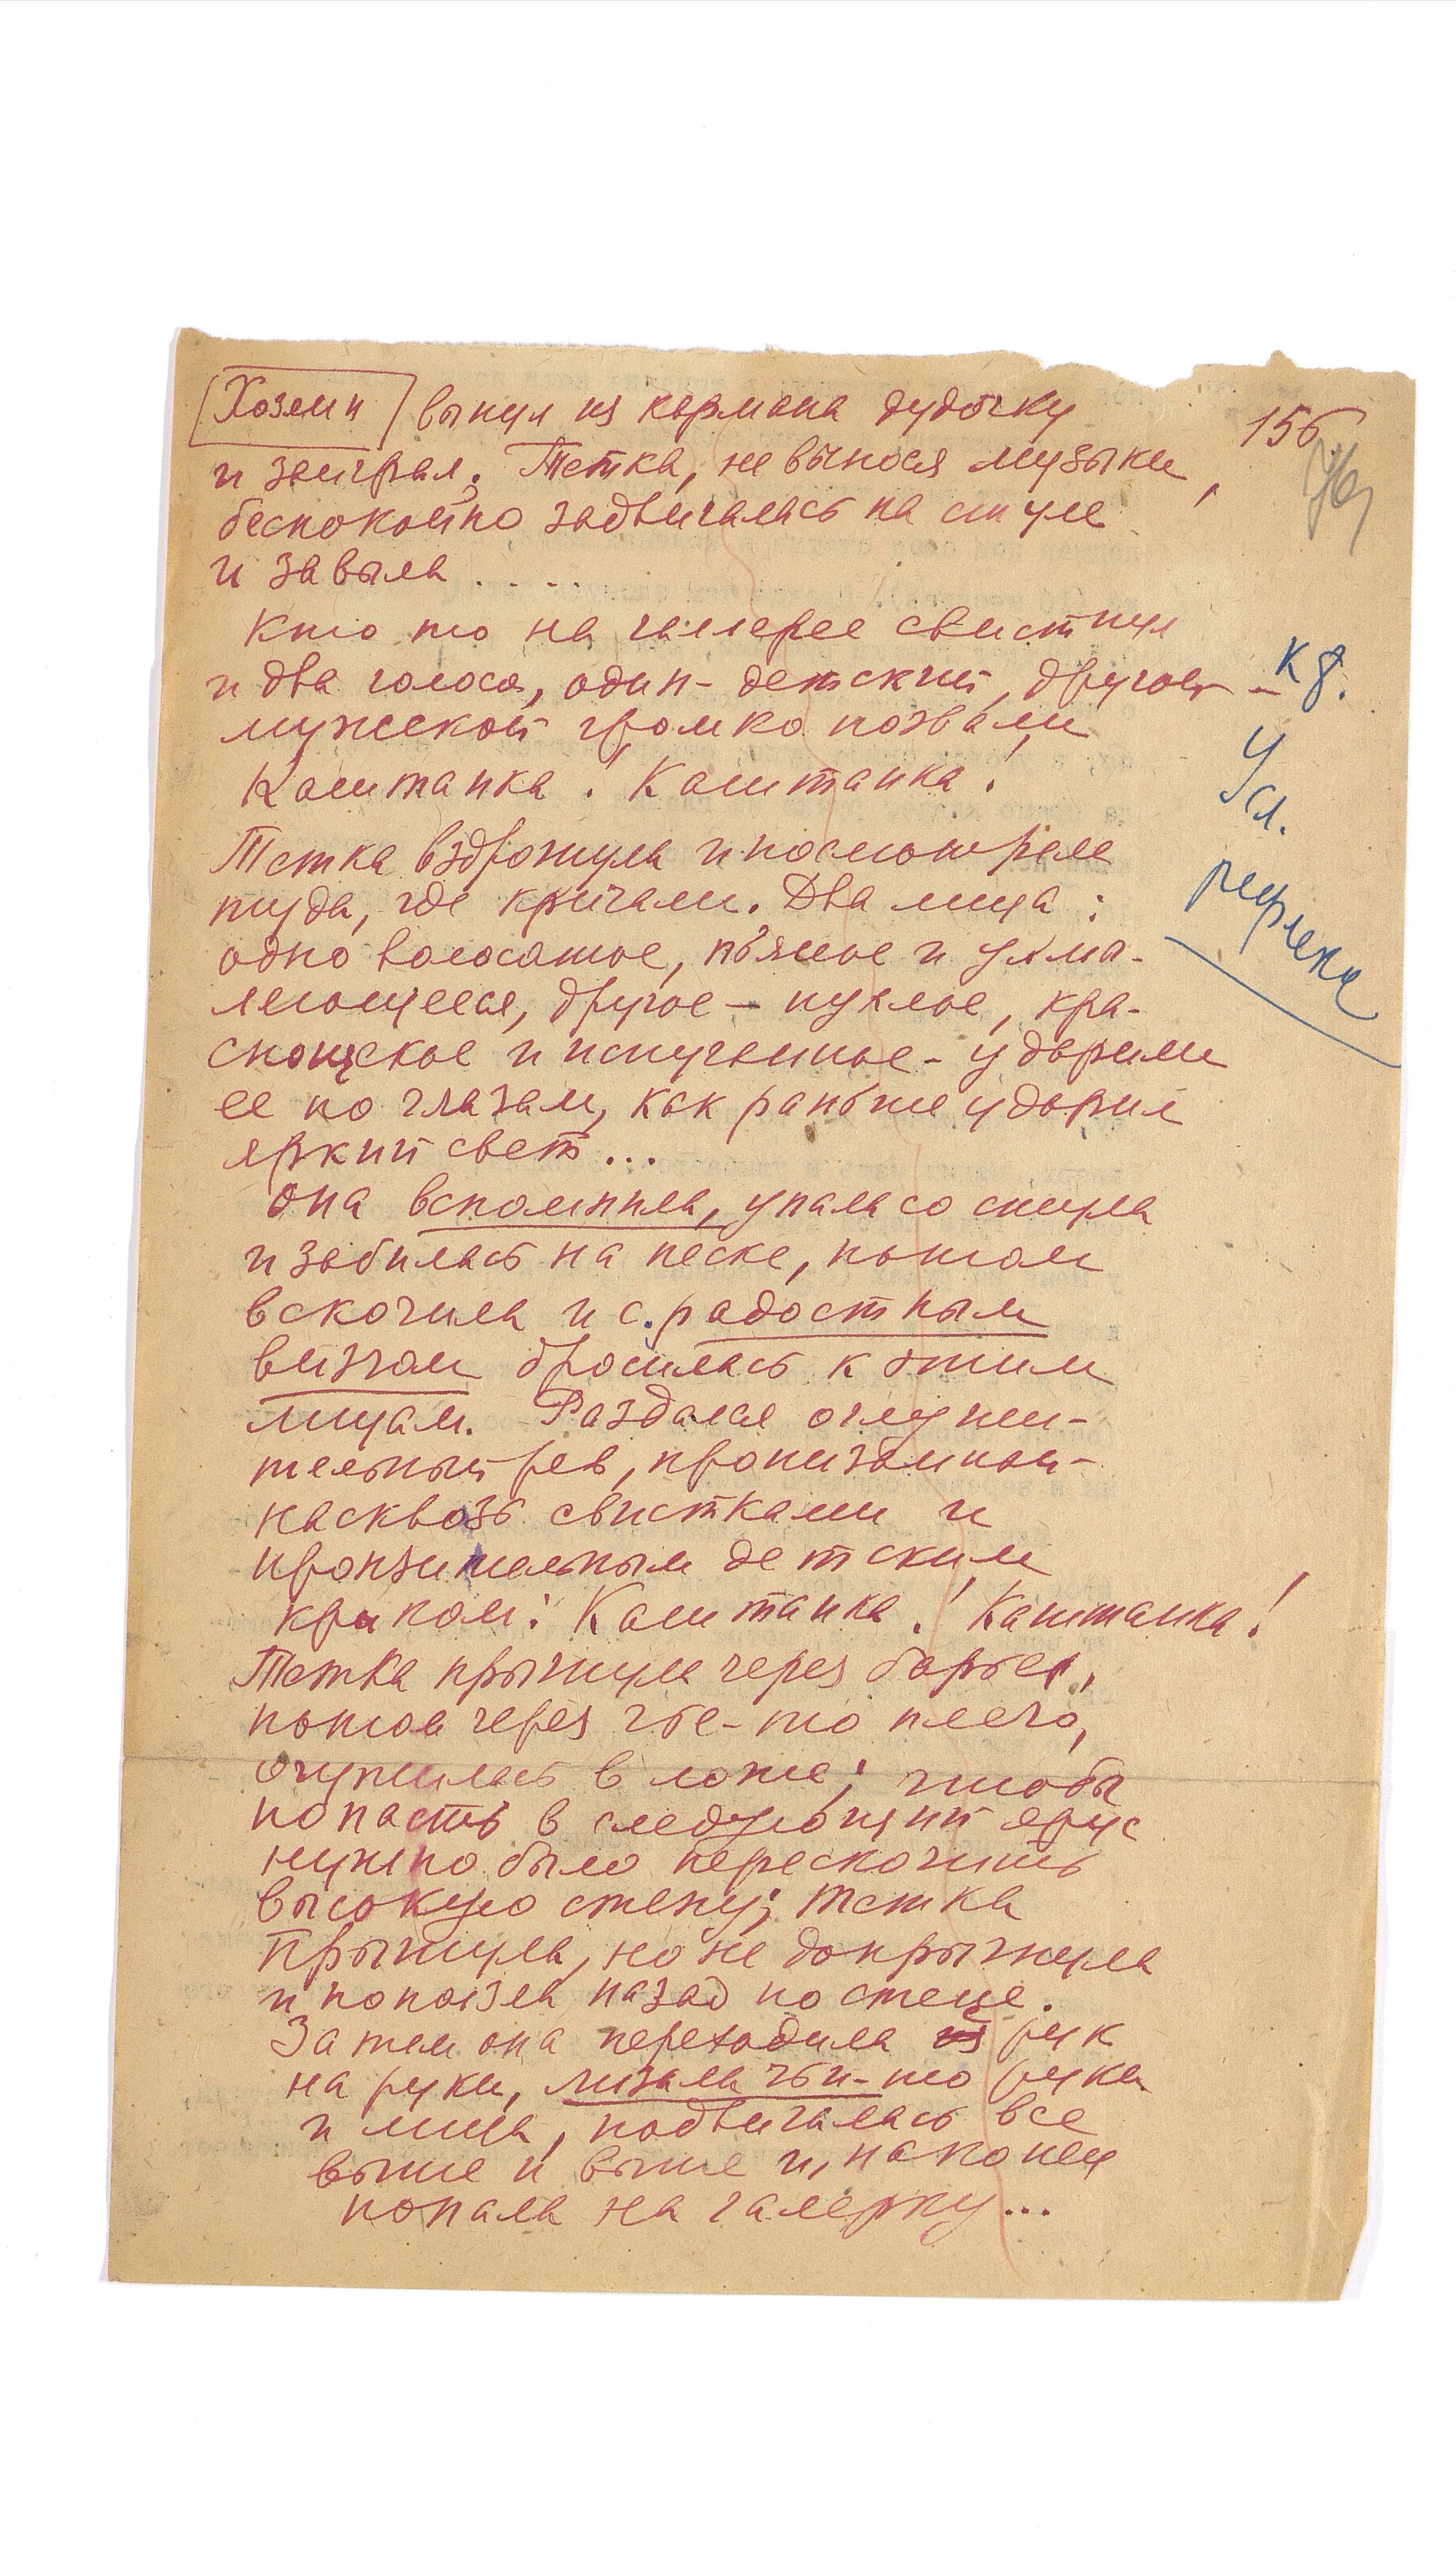 Хозяин вынул из кармана дудочку
и заиграл. Тетка, не вынося музыки,
беспокойно задвигалась на стуле
и завыла . . . .
Кто то на галлерее свистнул
и два голоса, один - детский, другой -
мужской громко позвали
Каштанка! Каштанка!
Тетка вздрогнула и посмотрела
туда, где кричали. Два лица:
одно волосатое, пьяное и ухмы-
ляющееся, другое - пухлое, кра-
снощекое и испуганное - ударили
ее по глазам, как раньше ударил
яркий свет...
она вспомнила, упала со стула
и забилась на песке, потом
вскочила и с радостным
визгом бросилась к этим
лицам. Раздался оглуши-
тельный рев, пронизанный
насквозь свистками и
пронзительным детским
криком: Каштанка! Каштанка!
Тетка прыгнула через барьер,
потом через чье-то плечо,
очутилась в ложе; чтобы
попасть в следующий ярус
нужно было перескочить
высокую стену; тетка
прыгнула, но не допрыгнула
и поползла назад по стене.
Затем она переходила из рук
на руки, лизала чьи-то руки
и лица, подвигалась все
выше и выше и, наконец
попала на галерку...
156
К 8.
Усл.